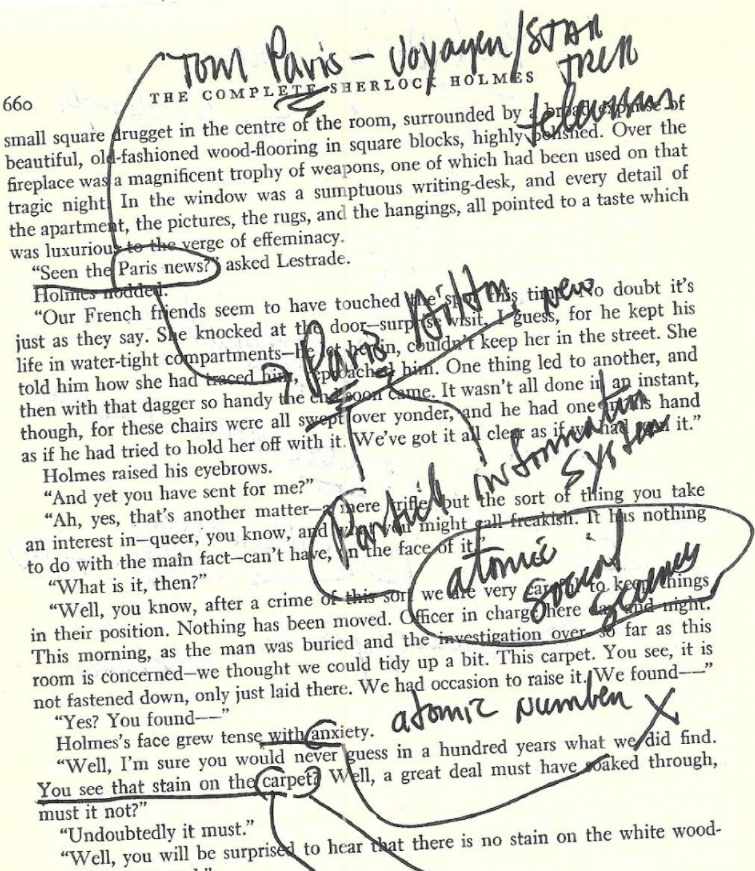 Tom Paris – Voyager/STAR
TREK
television
660
THE COMPLETE SHERLOCK HOLMES
small square drugget in the centre of the room, surrounded by a broad expanse of
beautiful, old-fashioned wood-flooring in square blocks, highly polished. Over the
fireplace was a magnificent trophy of weapons, one of which had been used on that
tragic night. In the window was a sumptuous writing-desk, and every detail of
the apartment, the pictures, the rugs, and the hangings, all pointed to a taste which
was luxurious to the verge of effeminacy.
“Seen the Paris news?” asked Lestrade.
Holmes nodded.
“Our French friends seem to have touched the spot this time. No doubt it’s
just as they say. She knocked at the door—surprise visit, I guess, for he kept his
life in water-tight compartments—he let her in, couldn’t keep her in the street. She
told him how she had traced him, reproached him. One thing led to another, and
then with that dagger so handy the end soon came. It wasn’t all done in an instant,
though, for these chairs were all swept over yonder, and he had one in his hand
as if he had tried to hold her off with it. We’ve got it all clear as if we had seen it.”
Paris Hilton news
Holmes raised his eyebrows.
“And yet you have sent for me?”
“Ah, yes, that’s another matter—a mere trifle, but the sort of thing you take
an interest in—queer, you know, and what you might call freakish. It has nothing
to do with the main fact—can’t have, on the face of it.”
information
system
“What is it, then?”
atomic
social
“Well, you know, after a crime of this sort we are very careful to keep things
in their position. Nothing has been moved. Officer in charge here day and night.
This morning, as the man was buried and the investigation over, so far as this
room is concerned—we thought we could tidy up a bit. This carpet. You see, it is
not fastened down, only just laid there. We had occasion to raise it. We found——”
“Yes? You found——”
Holmes’s face grew tense with anxiety.
atomic number X
“Well, I’m sure you would never guess in a hundred years what we did find.
You see that stain on the carpet? Well, a great deal must have soaked through,
must it not?”
“Undoubtedly it must.”
“Well, you will be surprised to hear that there is no stain on the white wood-